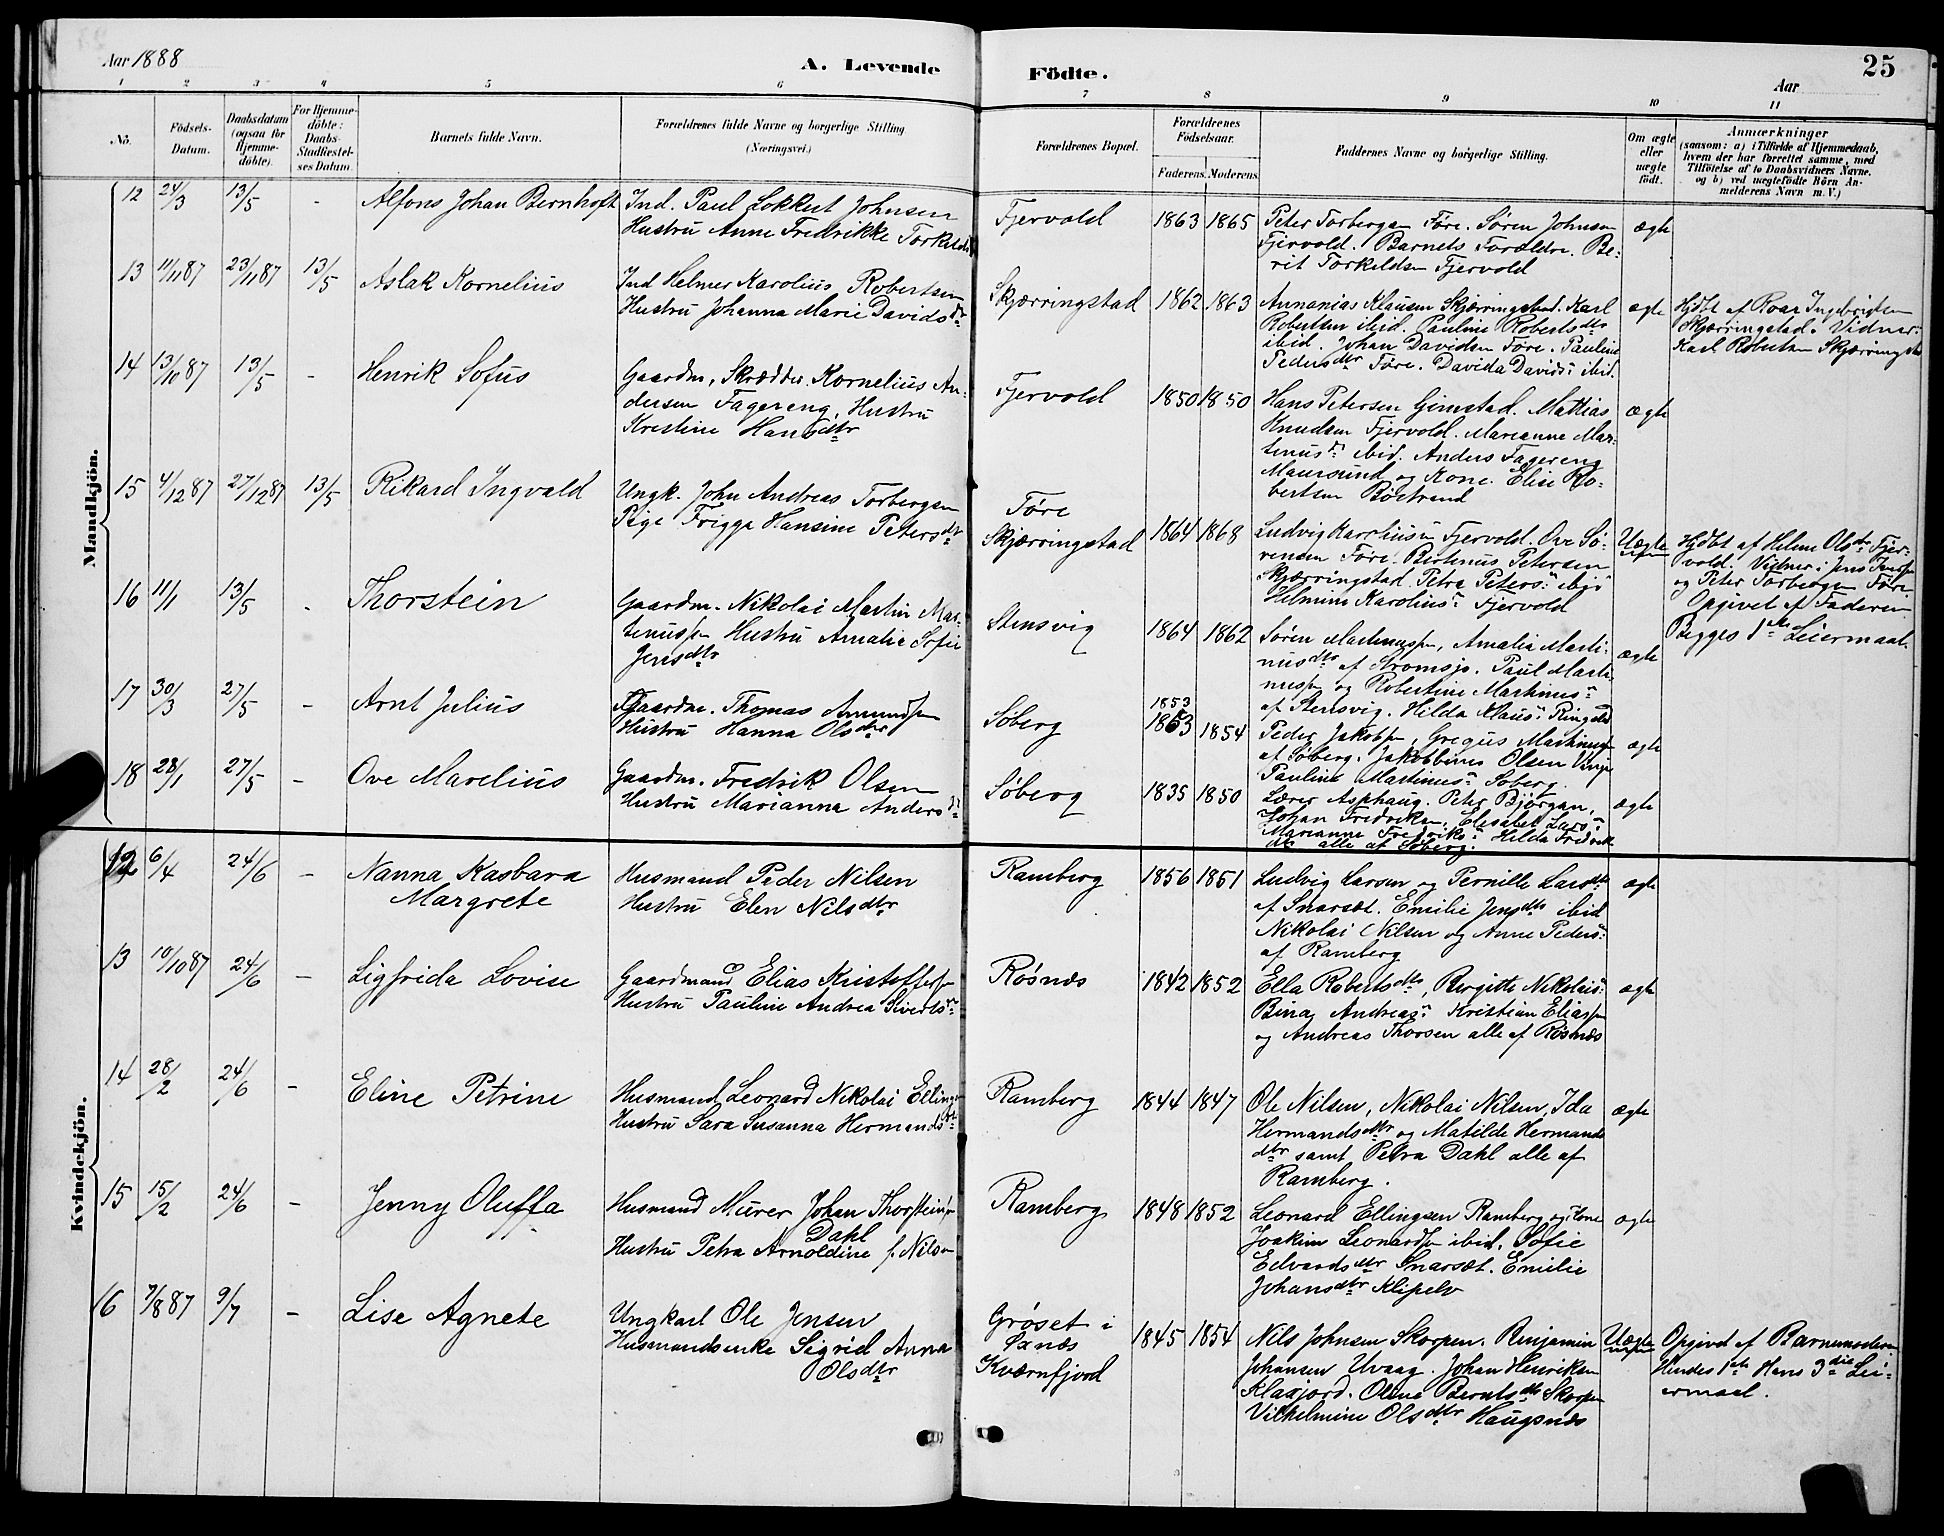 Aar 1888
A. Levende
Födte.
Aar
25
1 2 3 4 5 6 7 8 9 10 11
No.
Födsels-
Datum.
Daabsdatum
(ogsaa for
Hjemme-
döbte).
For Hjemme-
döbte:
Daabs-
Stadfæstel-
ses Datum.
Barnets fulde Navn.
Forældrenes fulde Navne og borgerlige Stilling
(Næringsvei.)
Forældrenes Bopæl.
Forældrenes
Födselsaar.
Faderens. Moderens.
Faddernes Navne og borgerlige Stilling.
Om ægte
eller
uægte
født.
Anmærkninger
(saasom: a) i Tilfælde af Hjemmedaab,
hvem der har forrettet samme, med
Tilföielse af to Daabsvidners Navne.
og b) ved uægtefödte Börn An-
melderens Navn m. V.)
Mandkjön.
12 24/3 13/5 - Alfons Johan Bernhoft
Ind. Paul Lokkert Johnsen
Hustru Anne Fredrikke Torkilds
Fjervold 1863 1865
Peter Torbergsen Føre. Søren Johnsen
Fjervold. Barnets Forældre. Be-
rit Torkildsen Fjervold
ægte
13 11/11 87 23/11 87 13/5 Aslak Kornelius
Ind Helmer Karolius Robertsen
Hustru Johanna Marie Davidsdr
Skjærringstad 1862 1863
Annanias Klausen Skjærringstad. Karl
Robertsen ibid. Pauline Robertsdtr
ibid. Johan Davidsen Føre. Pauline
Pedersdtr Føre. Davida Davids: ibid.
ægte
Hjdbt af Roar Ingebrigtsen
Skjærringstad. Vidner:
Karl Robertsen Skjærringstad
14 13/10 87 13/5 - Henrik Sofus
Gaardm, Skrædder Kornelius An-
dersen Fagereng, Hustru
Kristine Hansdtr
Fjervold 1850 1850
Hans Petersen Gimstad. Mathias
Knudsen Fjervold. Marianne Mar-
tinusdr ibid. Anders Fagereng
Maursund og Kone. Elise Ro-
bertsen Bøstrand
ægte
15 4/12 87 27/12 87 13/5 Rikard Ingvald
Ungk. John Andreas Torbergsen
Pige Frigga Hansine Petersdtr
Føre
Skjærringstad 1864 1868
Ludvig Karoliusen Fjervold. Ove Sø-
rensen Føre. Bertinus Petersen
Skjærringstad. Petra Peters:
Helmine Karolius: Fjervold
Uægte
Hjdbt af Helene Olsdtr Fjer-
vold. Vidner: Jens
og Peter Torbergsen Føre
Opgivet af Faderen
Begges 1ste Leiermaal.
16 11/1 13/5 - Thorstein
Gaardm. Nikolai Martin Mar-
tinussen Hustru Amalie Sofie
Jensdtr
Stensvig 1864 1862
Søren Martinussen, Amalia Marti-
nusdtr af Strømsjo. Paul Marti-
nussen og Robertine Martinus:
af Stensvig. Hilda Klaus: Ringstad
ægte
17 30/3 27/5 - Arnt Julius
Gaardm. Thomas Amundsen
Hustru Hanna Olsdtr
Søberg 1853 1853 1854
Peder Jakobsen, Gregus Martinusen
af Søberg. Jakobbines Olsen Vinje
Pauline Martinus: Søberg.
ægte
18 28/1 27/5 - Ove Marelius
Gaardm. Fredrik Olsen
Hustru Marianna Andersdr
Søberg 1835 1850
Lærer Asphaug. Peter Bjørgan,
Johan Fredriksen, Elisabet Lars:
Marianne Fredriks: Hilda Fredrik
dtr alle af Søberg.
ægte
Kvindekjön.
12 6/4 24/6 - Nanna Kasbara
Margrete
Husmand Peder Nilsen
Hustru Elen Nilsdtr
Ramberg 1856 1851
Ludvig Larsen og Pernille Larsdtr
af Snarset. Emilie Jensdtr ibid
Nikolai Nilsen og Anne Peders:
af Ramberg
ægte
13 10/10 87 24/6 - Sigfrida Lovise
Gaardmand Elias Kristoffersen
Hustru Pauline Andrea Sivertsdr
Røsnæs 1842 1852
Ella Robertsdtr, Birgitte Nikolais:
Bina Andreas: Kristian Eliassen
og Andreas Thorsen alle af Røsnæs
ægte
14 28/2 24/6 - Eline Petrine
Husmand Leonard Nikolai Ellings
Hustru Sara Susanna Hermandsdtr
Ramberg 1844 1847
Ole Nilsen, Nikolai Nilsen, Ida
Hermandsdtr og Matilde Hermands
dtr samt Petra Dahl alle af
Ramberg.
ægte
15 15/2 24/6 - Jenny Oluffa
Husmand Murer Johan Thorsteinsen
Dahl
Hustru Petra Arnoldine f. Nilsen
Ramberg 1848 1852
Leonard Ellingsen Ramberg og Kone
Joakim Leonardsen ibid. Sofie
Edvardsdtr Snarset. Emilie
Johansdtr Klipelv
ægte
16 7/8 87 9/7 - Lise Agnete
Ungkarl Ole Jensen
Husmandsenke Sigrid Anna
Olsdtr
Grøset i
Øxnæs
Kværnfjord 1845 1854
Nils Johnsen Skorpen. Benjamin
Johansen Uvaag. Johan Henriksen
Klaxjord. Oline Berntsdtr Skorpen
Vilhelmine Olsdtr Haugsnæs
Uægte
Opgived af Barnemoderen
Hendes 1ste Hans 3die Lei-
ermaal.